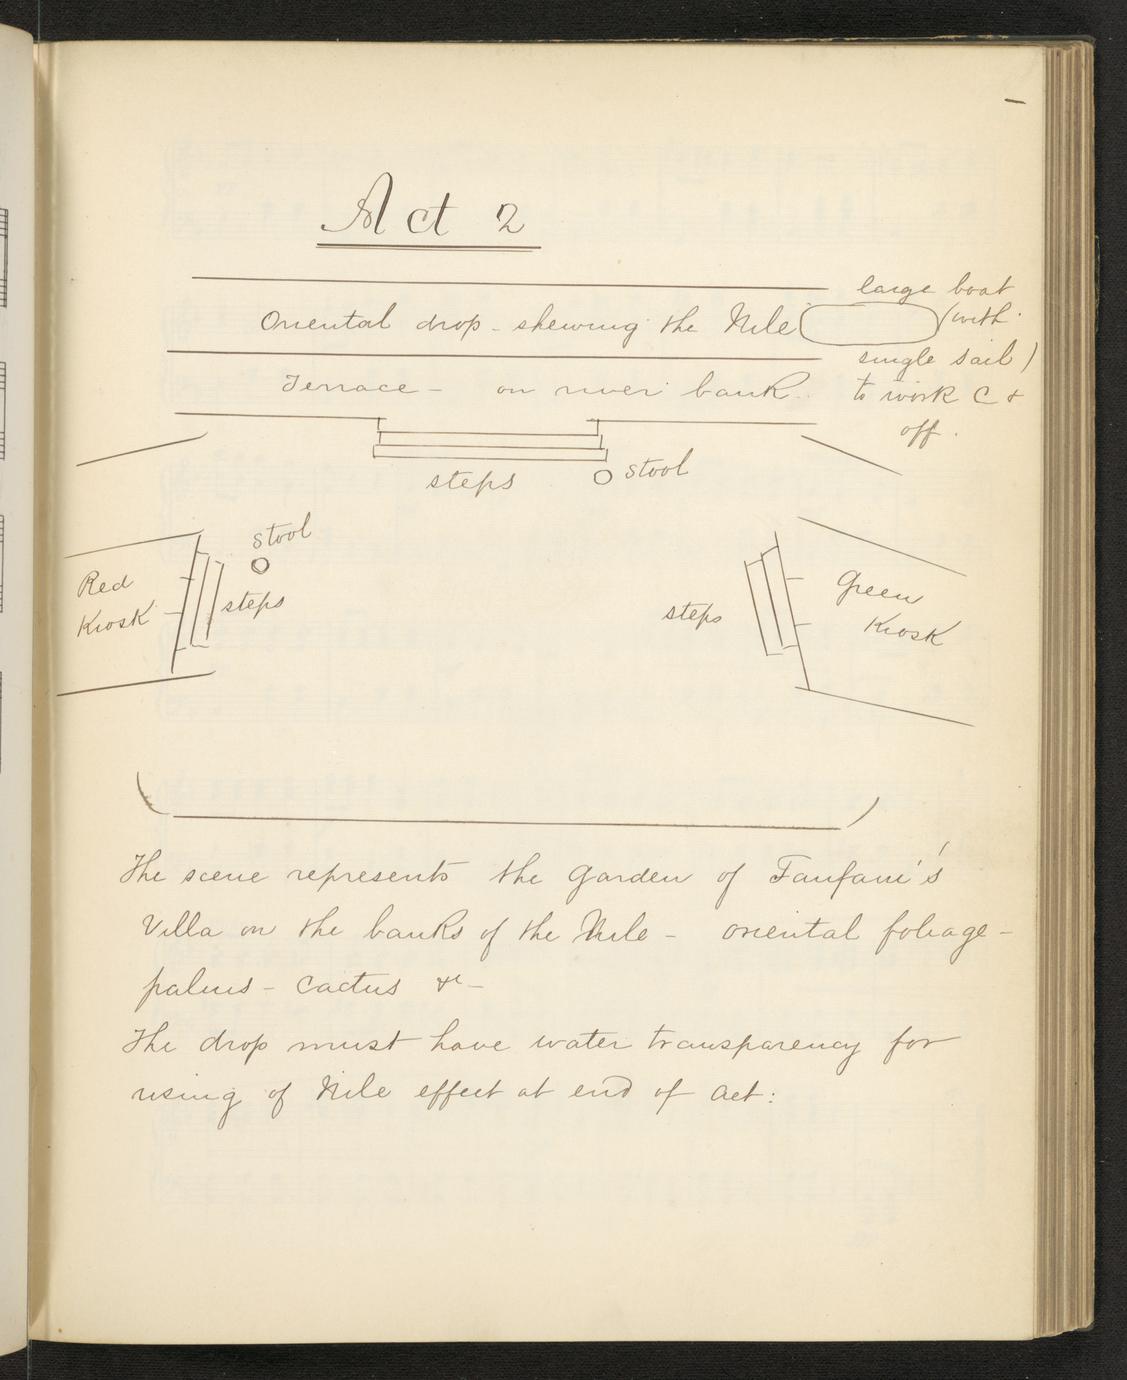 Act 2
large boat
Oriental drop - shewing the Nile (with
single sail)
Terrace - on river bank. to work C &
off.
steps stool
stool
Red
Kiosk steps
Green
steps Kiosk
The scene represents the Garden of Fanfani's
Villa on the banks of the Nile - oriental foliage -
palms - Cactus &c -
The drop must have water transparency for
rising of Nile effect at end of Act: